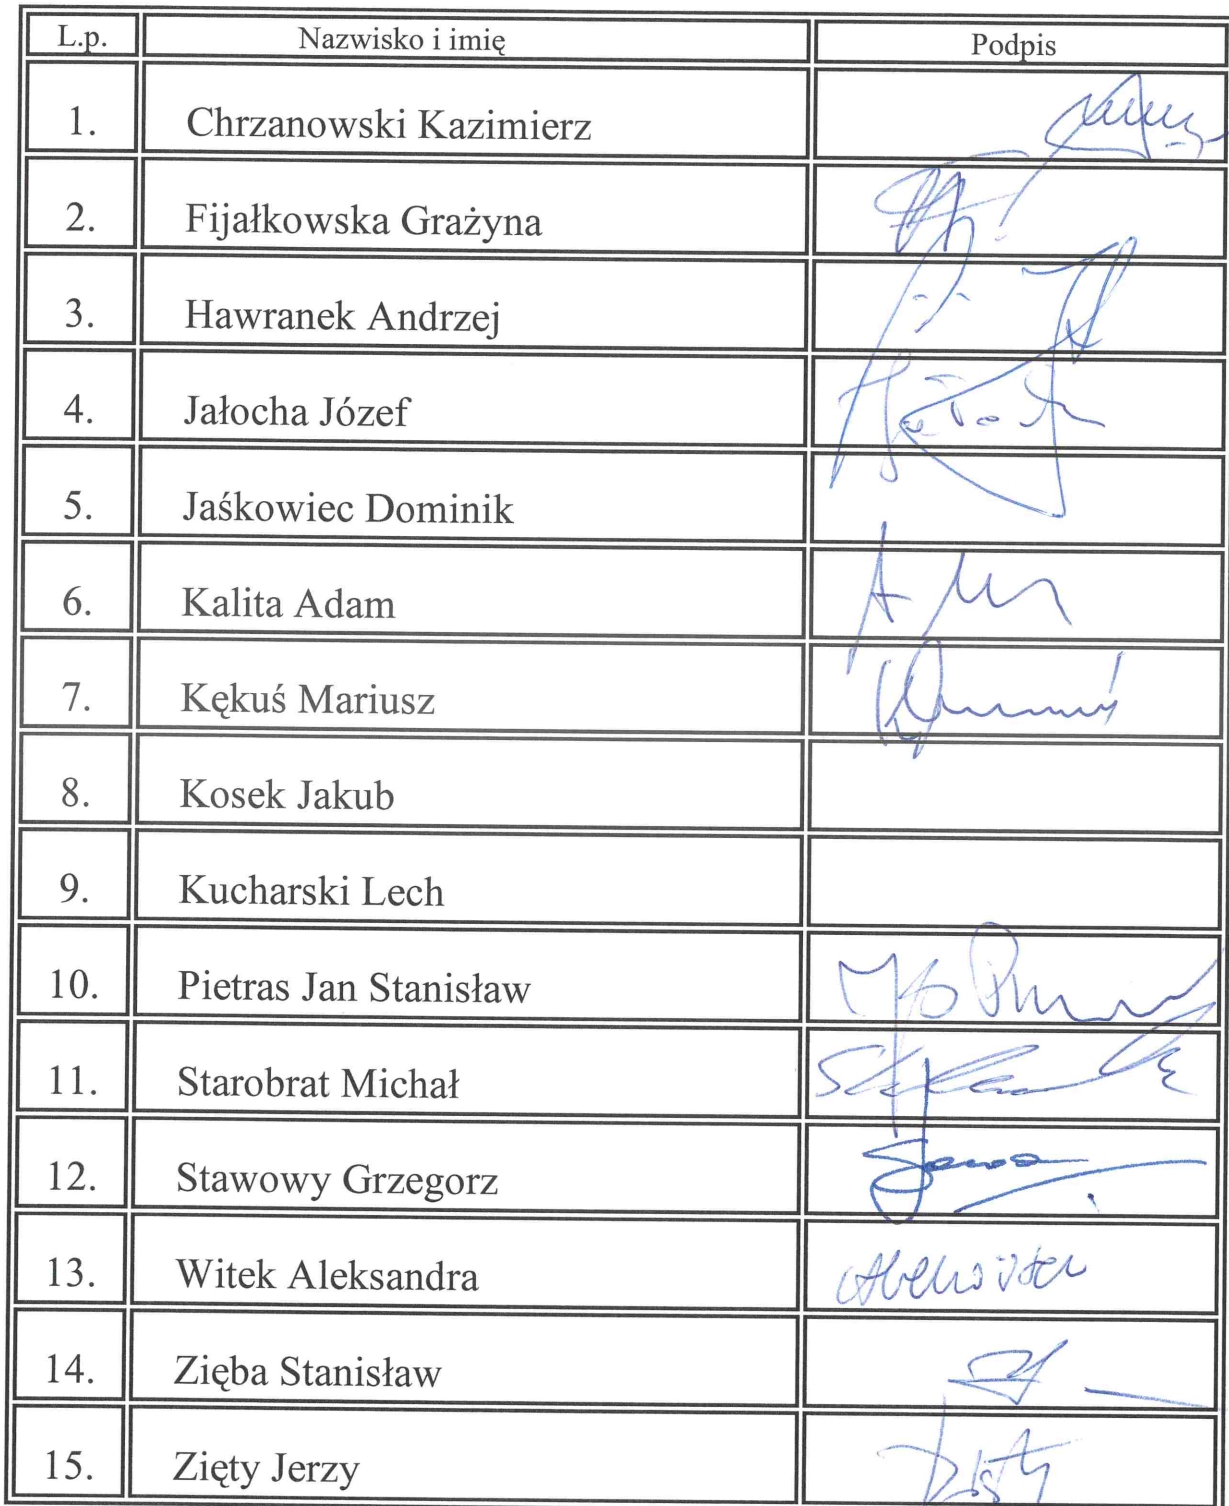 L.p. Nazwisko i imię Podpis
1. Chrzanowski Kazimierz
2. Fijałkowska Grażyna
3. Hawranek Andrzej
4. Jałocha Józef
5. Jaśkowiec Dominik
6. Kalita Adam
7. Kękuś Mariusz
8. Kosek Jakub
9. Kucharski Lech
10. Pietras Jan Stanisław
11. Starobrat Michał
12. Stawowy Grzegorz
13. Witek Aleksandra
14. Zięba Stanisław
15. Zięty Jerzy